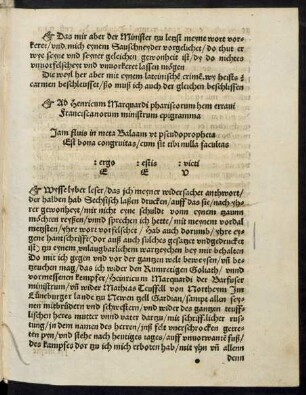 Das mir aber der Mönster zu letzst meyne wort vor-
keret/ vnd mich eynem Sauschneyder vorgelichet/ do thut er
wye seyne vnd seyner geleichen gewonheit ist/ dy do nichtes
vnuorfelschet vnd vnuorkeret lassen mögen
Die weyl her aber mit eynem lateinische crimē. wy heists :
carmen beschleusset/ sso muß ich auch der gleichen beschlissen
Ad Heinricum Marquardi phariseorum hem errani
Franciscanorum ministrum epigramma
Jam fluis in meta Balaam vt pseudopropheta
Est bona congruitas/ cum sit tibi nulla facultas
: ergo : estis : victi
E E V
Wysse lyber leser/ das ich meyner widersacher anthwort/
der halben hab Sechsisch laßen drucken/ auff das sie/ nach yh-
rer gewonheyt/ mir nicht eyne schuldt vonn eynem zaunn
möchten reyssen/ vnd sprechen ich hette/ mit meynem vordal
metzschen/ yhre wort vorfelschet/ Hab auch dorumb/ yhre ey-
gene hand schrifft/ dor auß auch solches gesatzet vnd gedrucket
ist/ zu eynem vnlaughparlichem warzeychen bey mir behalden
Do mit ich gegen vnd vor der gantzen welt beweysen/ vñ be-
zeuchen mag/ das ich wider den Nemretigen Goliath/ vnd
vormessenen kempfer/ Heinricum Marquardi der Barfuser
ministrum/ vñ wider Mathias Teuffell von Northeym Im
Lüneburger lande zu Newen zell Gardian/ sampt allen sey-
nen mithbrüdern vnd schwestern/ vnd wider des gantzen teuff-
lischen heres mutter vnnd vater dargu/ mit schrifflicher rus-
tung/ in dem namen des herren/ inß felt vnerschrocken getre-
ten pyn/ vnd stehe nach heutiges tages/ auff vnuorwant fuß/
des kampfes dor zu ich mich erboten hab/ mit yhn vñ allenn
denn